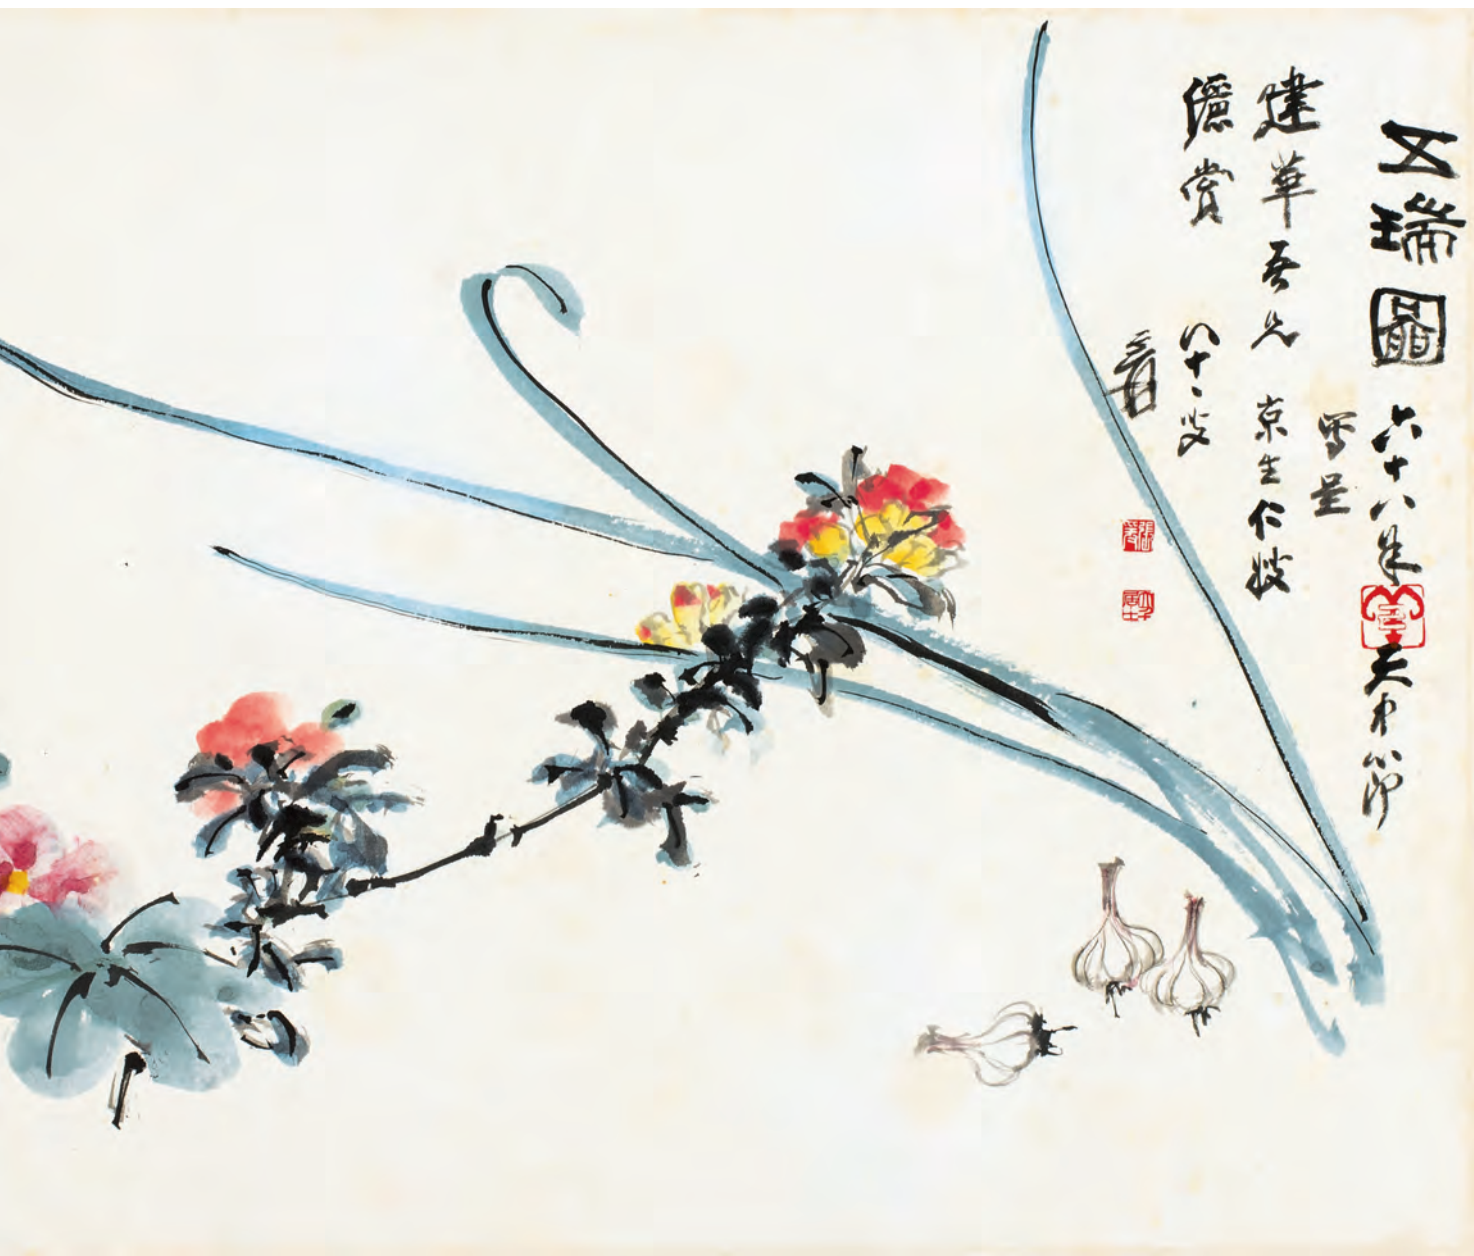 五瑞圖
六十八年天中節
寫呈
建華吾兄 京生仁嫂
儷賞
八十一叟
爰
張爰
大千居士